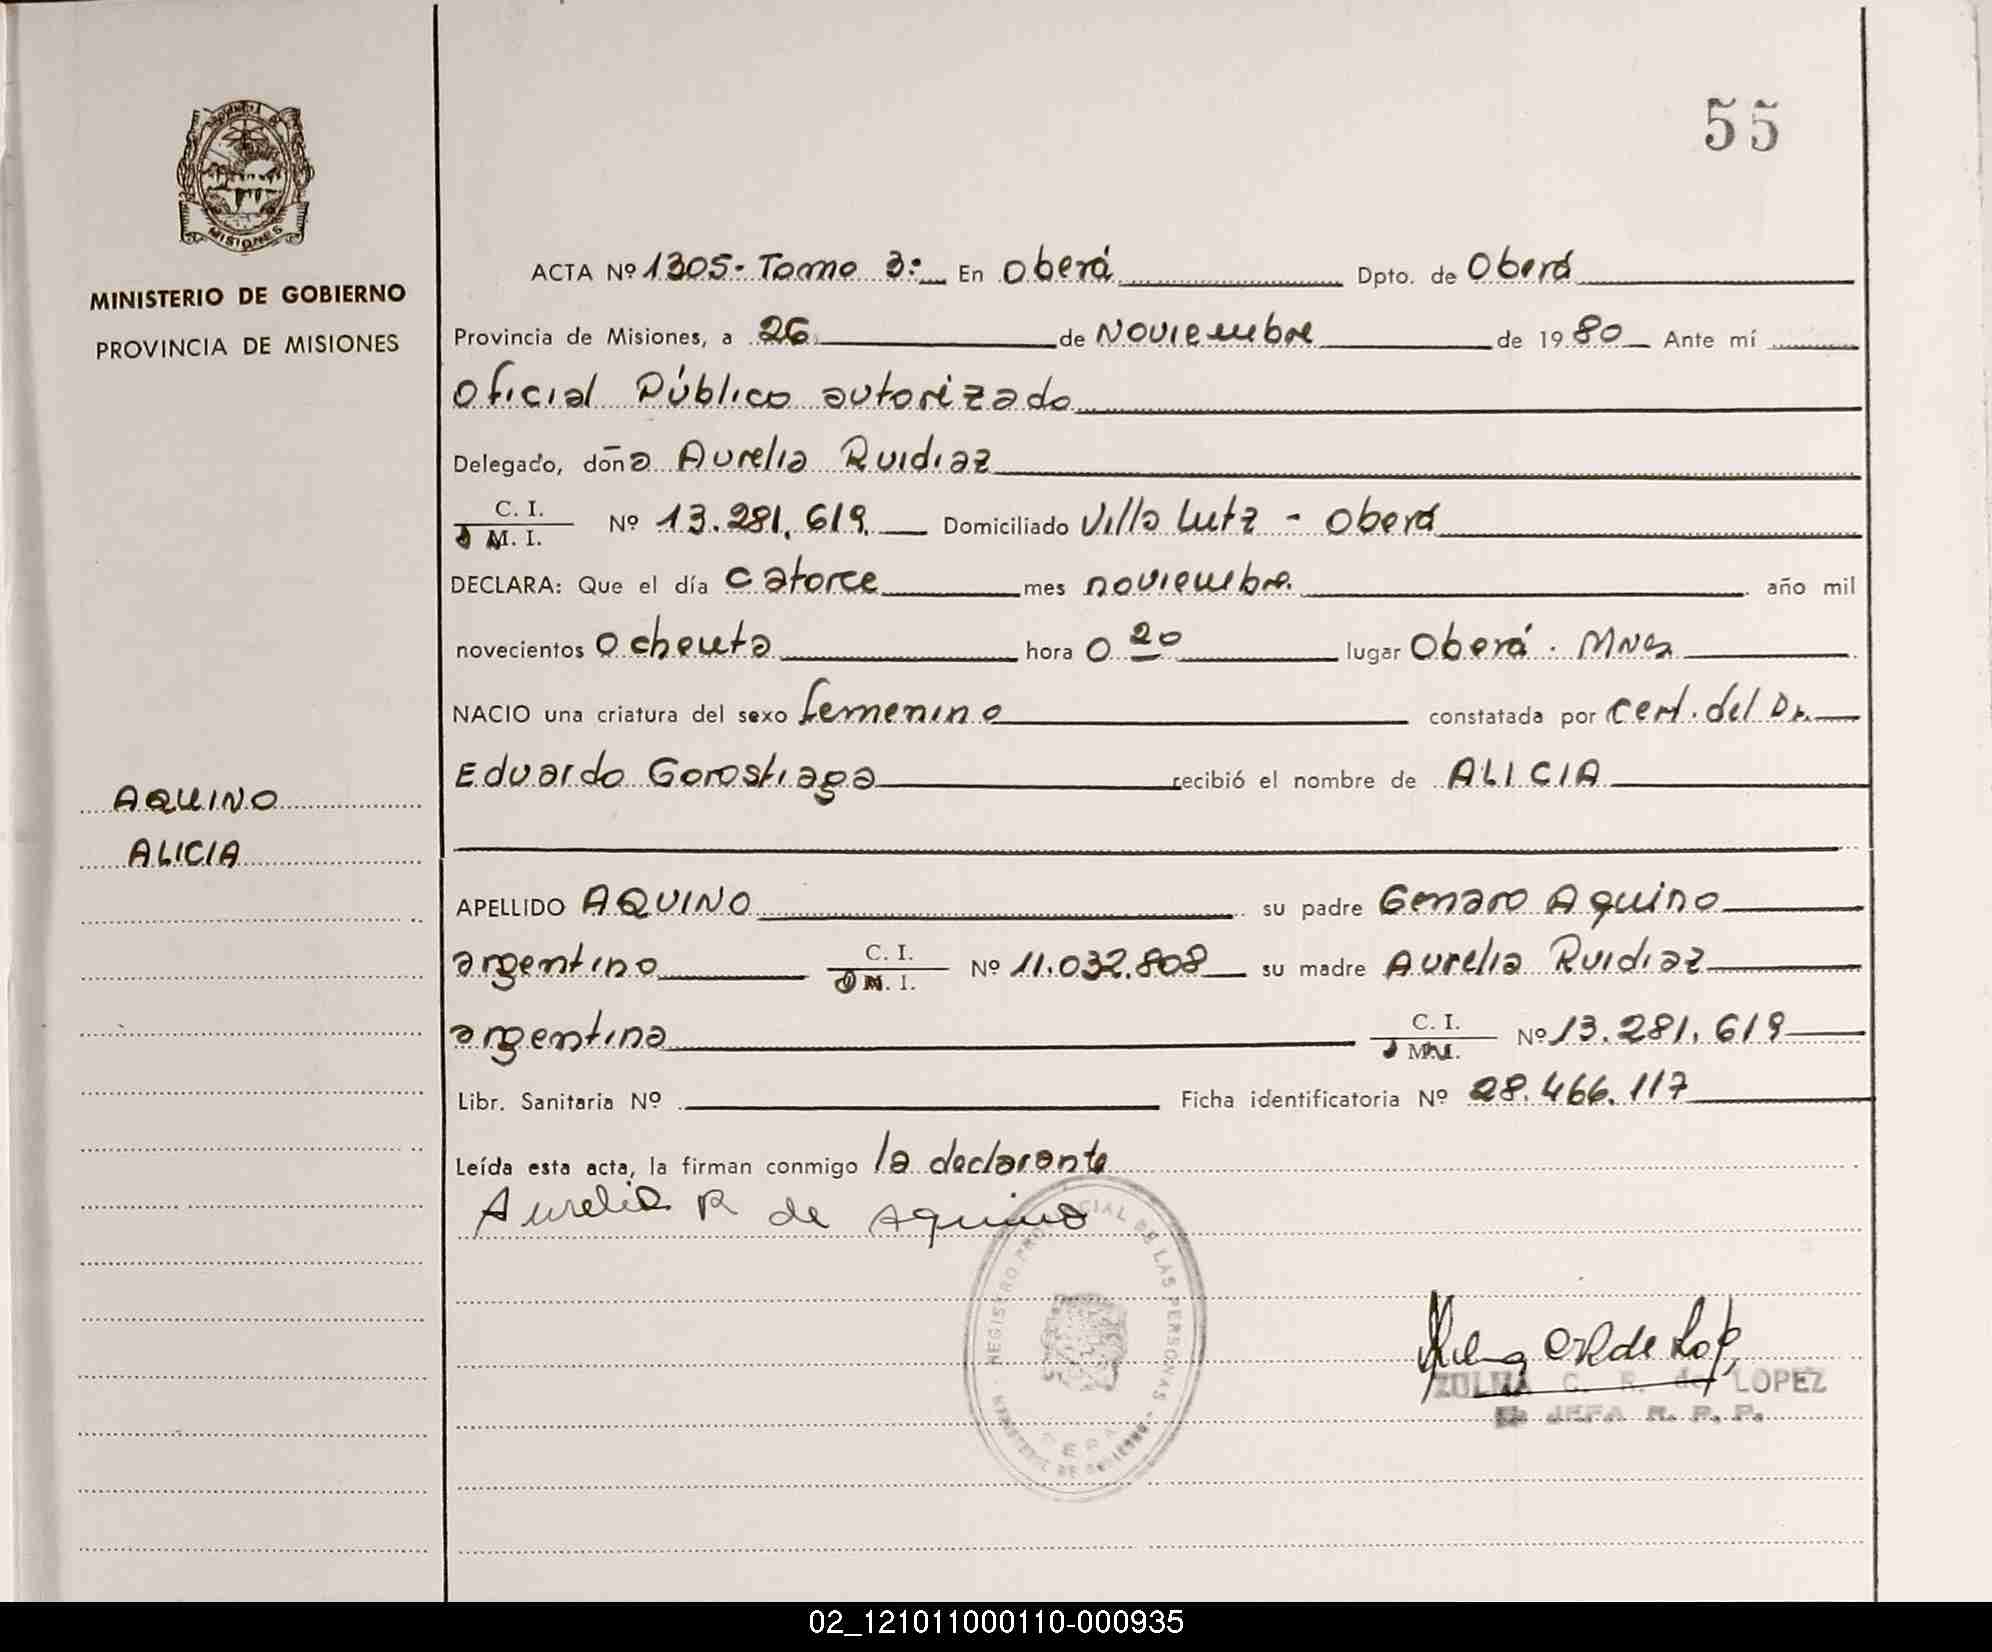 55
MISIONES
MINISTERIO DE GOBIERNO
PROVINCIA DE MISIONES
AQUINO
ALICIA
ACTA Nº 1305- Tomo 3: En Oberá Dpto. de Oberá
Provincia de Misiones, a 26 de Noviembre de 1980 Ante mí
Oficial Público autorizado
Delegado, doña Aurelia Ruidiaz
C. I.
M. I. Nº 13.281.619 Domiciliado Villa Lutz - Oberá
DECLARA: Que el día catorce mes noviembre año mil
novecientos Ochenta hora 0 20 lugar Oberá. Mnes
NACIO una criatura del sexo femenino constatada por Cert. del Dr.
Eduardo Gorostiaga recibió el nombre de ALICIA
APELLIDO AQUINO su padre Genaro Aquino
argentino C. I. M. I. Nº 11.032.808 su madre Aurelia Ruidiaz
argentina C. I. M. I. Nº 13.281.619
Libr. Sanitaria Nº Ficha identificatoria Nº 28.466.117
Leída esta acta, la firman conmigo la declarante
Aurelia R de Aquino
REGISTRO PROVINCIAL DE LAS PERSONAS
MINISTERIO DE GOBIERNO
ZULMA C. R. de LOPEZ
JEFA R. P. P.
02_121011000110-000935